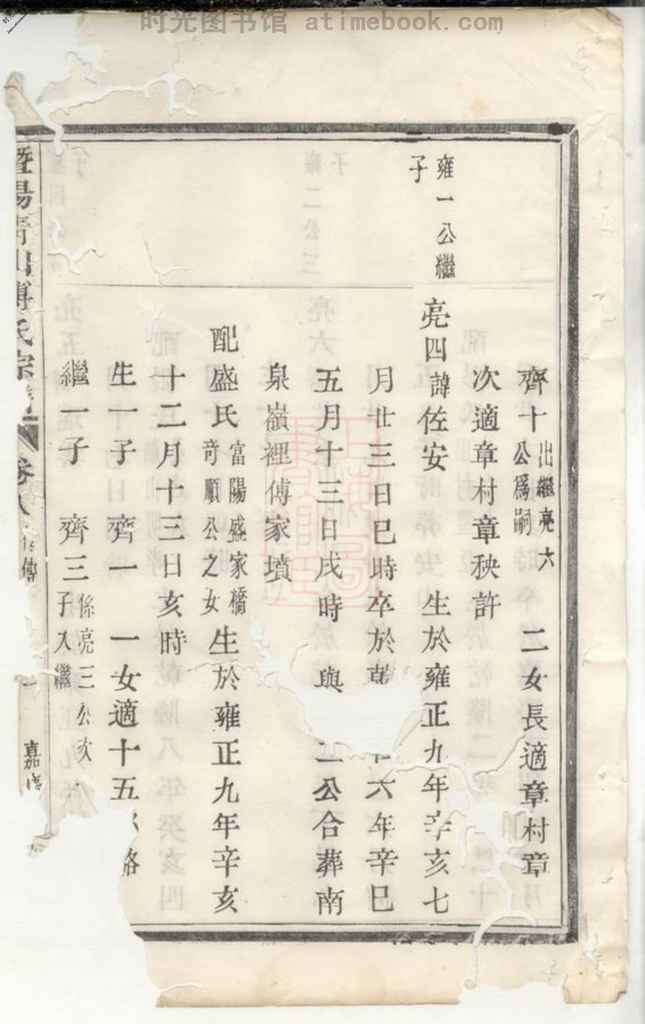 时光图书馆 - atimebook.com
齊十 出繼亮六公爲嗣 二女長適章村章
次適章村章秧許
雍一公繼子
亮四 諱佐安 生於雍正九年辛亥七
月廿三日巳時卒於乾 六年辛巳
五月十三日戌時 與 二公合葬南
泉嶺裡傅家墳
配盛氏 富陽盛家橋奇順公之女 生於雍正九年辛亥
十二月十三日亥時
生一子 齊一 一女適十五
繼一子 齊三 係亮三公次子入繼
暨陽 山傅氏宗 卷八 傳 一 嘉